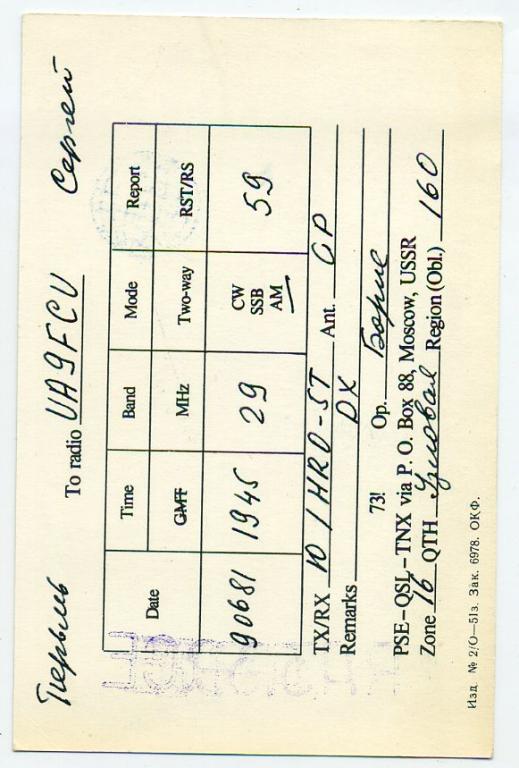 Пермь Сергей
To radio UA9FCU
Date Time Band Mode Report
GMT MHz Two-way RST/RS
90681 1945 29 CW SSB AM 59
TX/RX 10 / HRO-5T Ant. GP
Remarks DX
73! Op. Борис
PSE–QSL–TNX via P. O. Box 88, Moscow, USSR
Zone 16 QTH Узловая Region (Obl.) 160
Изд. № 2/О—51з. Зак. 6978. ОКФ.